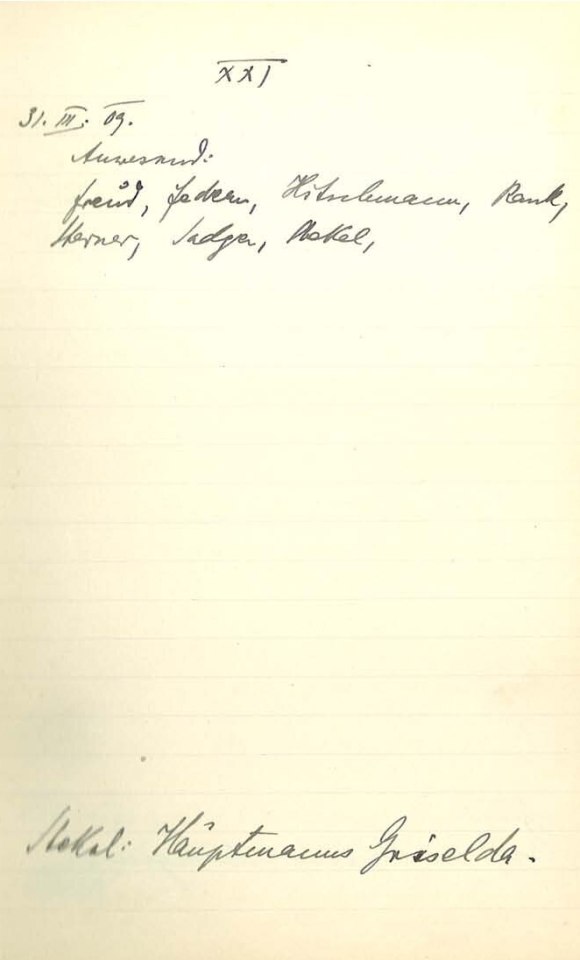 XXI
31. III. 09.
Anwesend:
Freud, Federn, Hitschmann, Rank,
Steiner, Sadger, Stekel,
Stekel: Hauptmanns Griselda.